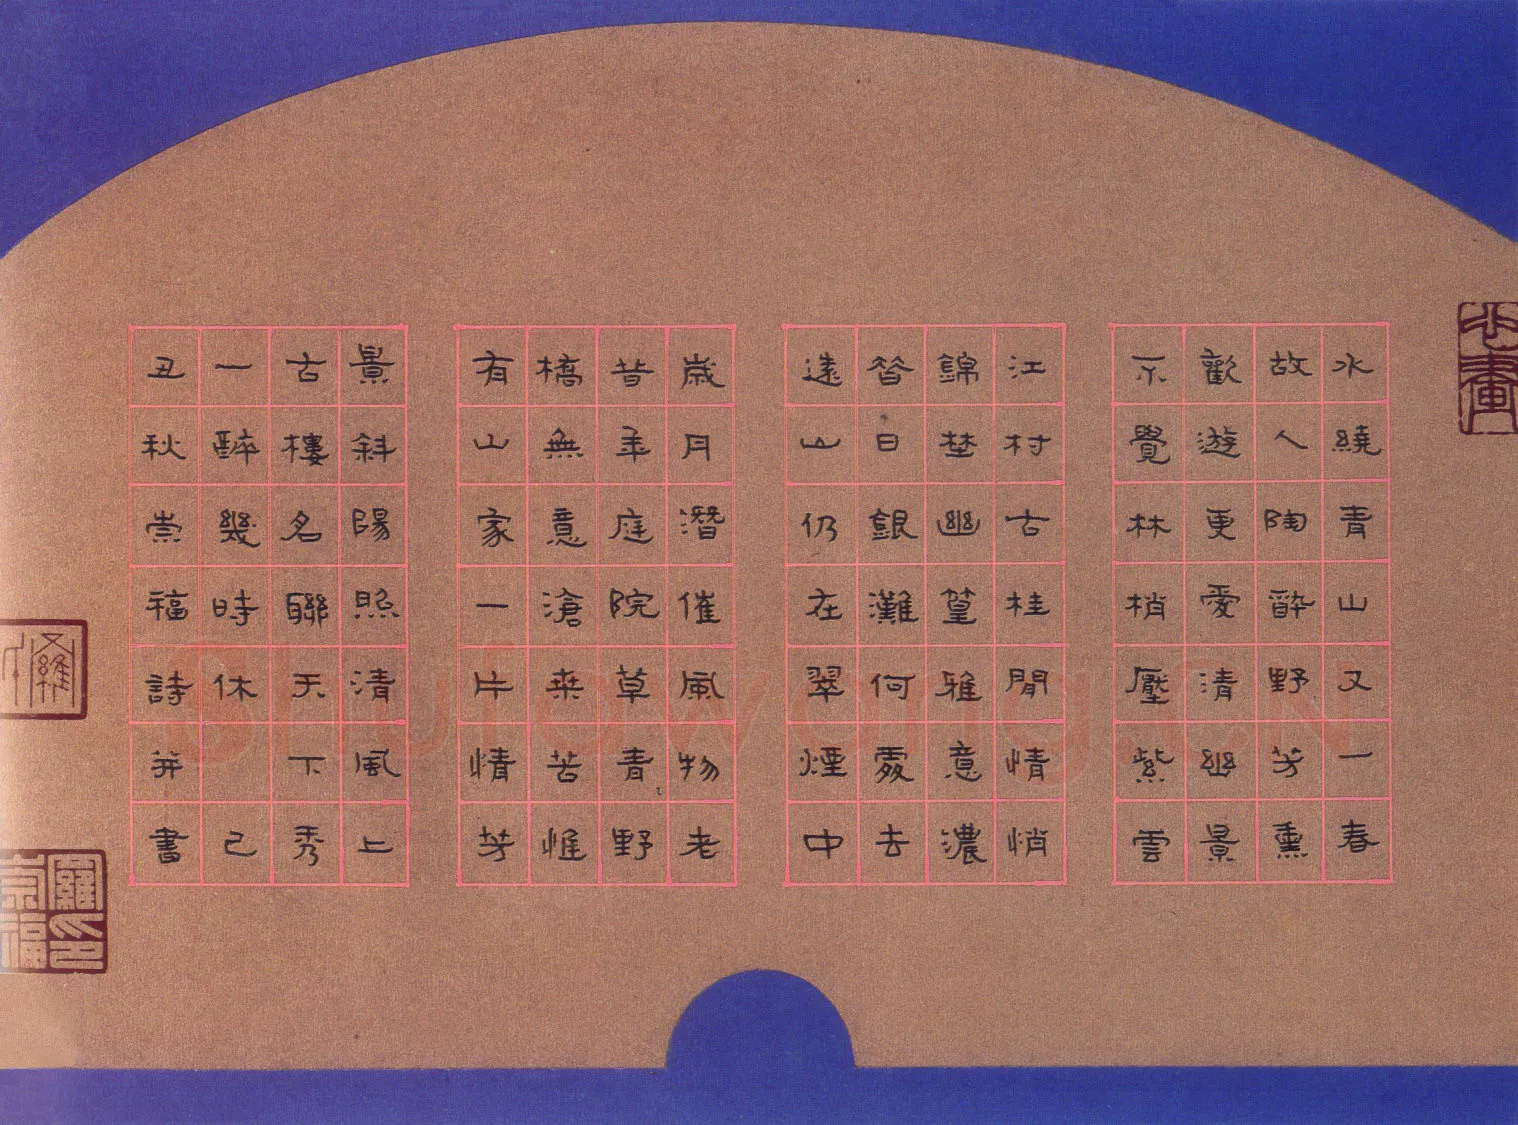 水繞青山又一春
故人陶醉野芳熏
歡遊更愛清幽景
不覺林梢壓紫雲
江村古桂閒情悄
錦埜幽篁雅意濃
昝日銀灘何處去
遠山仍在翠煙中
歲月潛催風物老
昔年庭院草青野
橋無意滄桑苦惟
有山家一片情芳
景斜陽照清風上
古樓名聯天下秀
一醉幾時休己
丑秋崇福詩并書
書畫
羅崇福印
Shufawang.CN